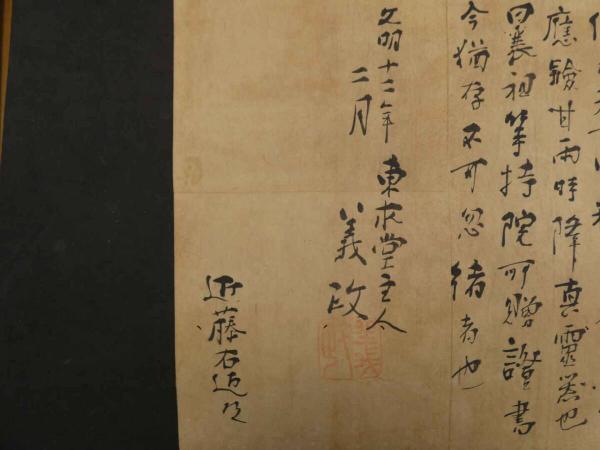 應驗甘雨時降真靈器也
曰曩祖等持院所贈證書
今猶存不可忽緒者也
文明十二年
二月
東求堂主人
義政
近藤右近